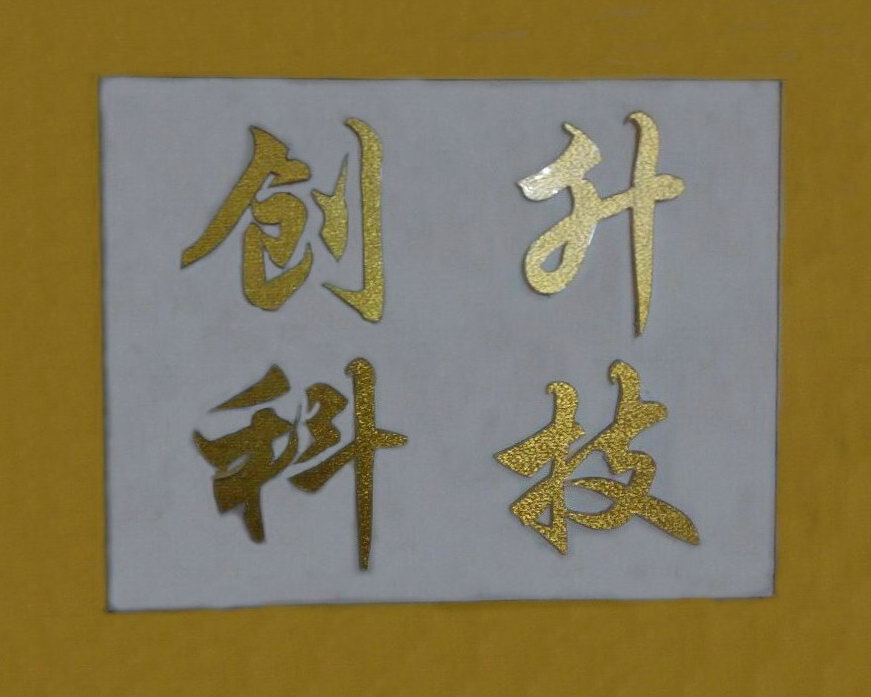 创升
科技